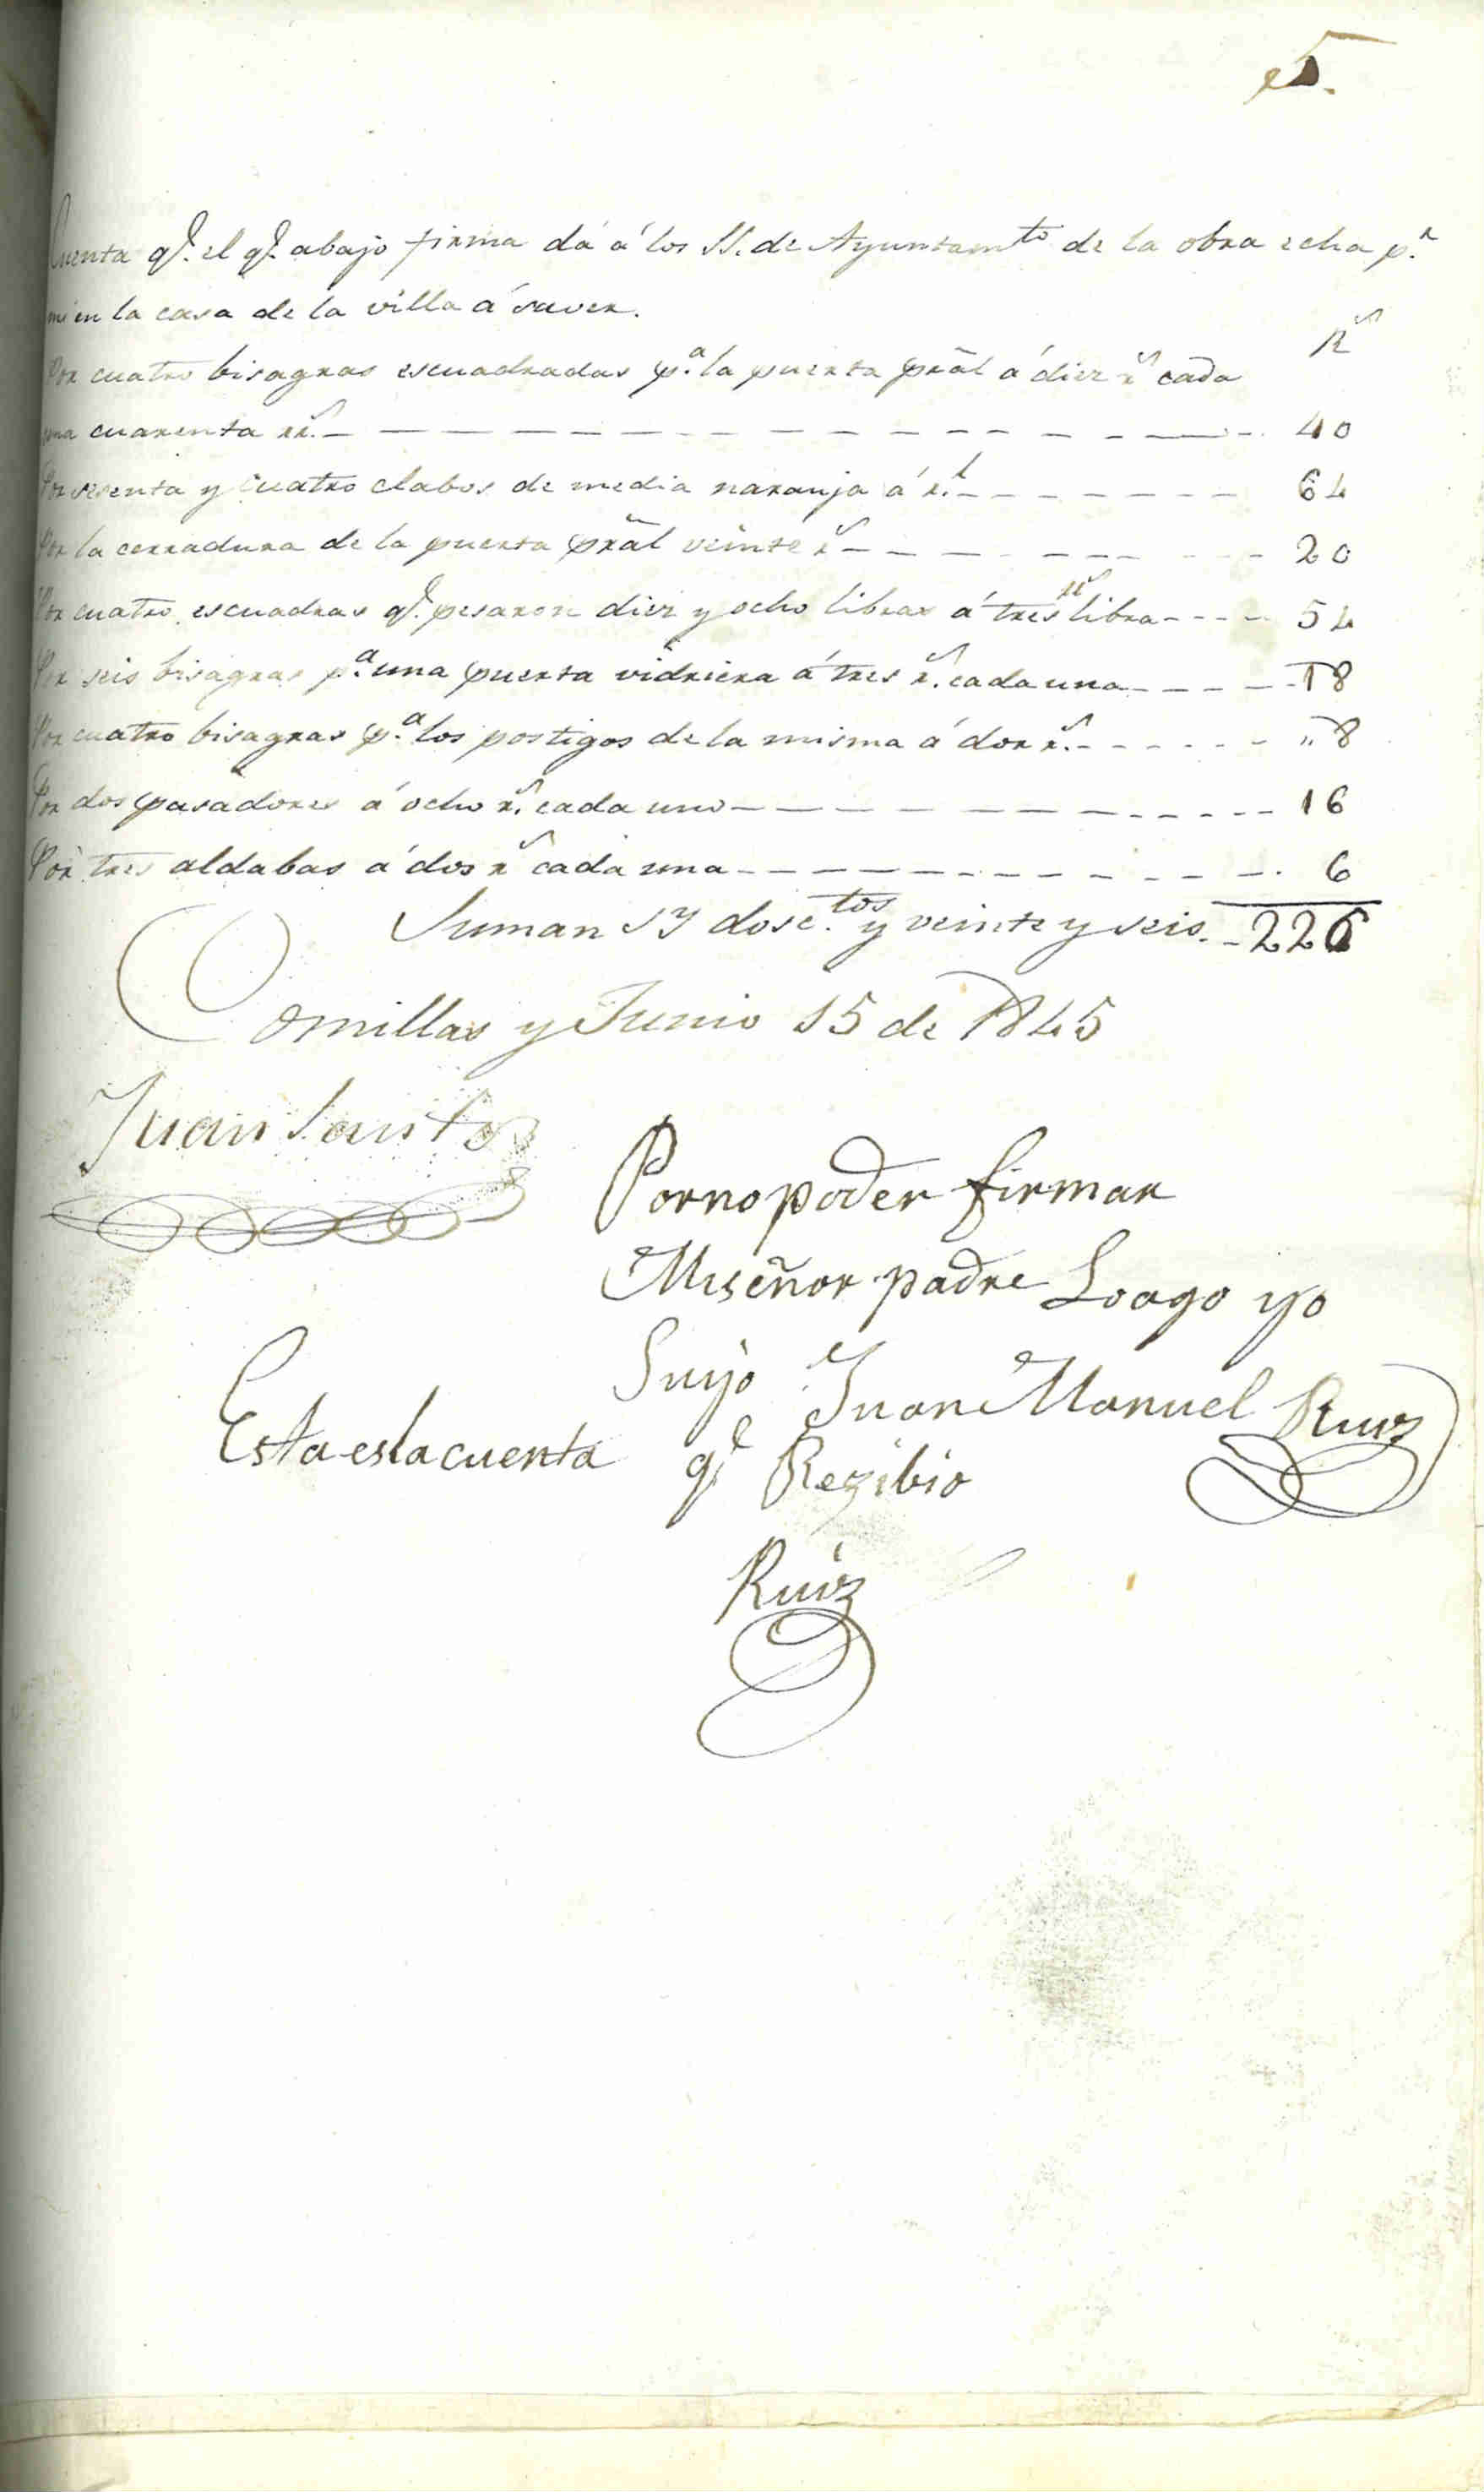 5.
Cuenta qe. el qe. abajo firma dá á los SS. de Ayuntamto de la obra echa pr.
mi en la casa de la villa á saver.
Rs
Por cuatro bisagras escuadradas pa. la puerta pral á diez rs cada
una cuarenta rs. 40
Por sesenta y cuatro clabos de media naranja á rl. 64
Por la cerradura de la puerta pral veinte rs 20
Por cuatro escuadras qe. pesaron diez y ocho libras á tres rs libra 54
Por seis bisagras pa. una puerta vidriera á tres rs. cada una 18
Por cuatro bisagras pa. los postigos de la misma á dos rs. "8
Por dos pasadores á ocho rs. cada uno 16
Por tres aldabas á dos rs cada una 6
Suman dosc.tos y veinte y seis. 226
Comillas y Junio 15 de 1845
Juan Santos
Por no poder firmar
Mi señor padre Loago yo
Suijo Juan Manuel Ruiz
Esta es la cuenta qe Rezibio
Ruiz